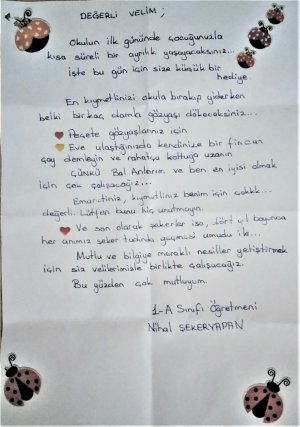 DEĞERLİ VELİM;
Okulun ilk gününde çocuğunuzla
kısa süreli bir ayrılık yaşayacaksınız...
İşte bu gün için size küçük bir
hediye.
En kıymetlinizi okula bırakıp giderken
belki birkaç damla gözyaşı dökeceksiniz...
Peçete gözyaşlarınız için
Eve ulaştığınızda kendinize bir fincan
çay demleyin ve rahatça koltuğa uzanın
ÇÜNKÜ Bal Arılarım. ve ben en iyisi olmak
için çok çalışacağız...
Emanetiniz, kıymetliniz benim için çokkk...
değerli. Lütfen bunu hiç unutmayın.
Ve son olarak şekerler ise, dört yıl boyunca
her anımız şeker tadında geçmesi umudu ile...
Mutlu ve bilgiye meraklı nesiller yetiştirmek
için siz velilerimizle birlikte çalışacağız.
Bu yüzden çok mutluyum.
1-A Sınıfı Öğretmeni
Nihal ŞEKERYAPAN